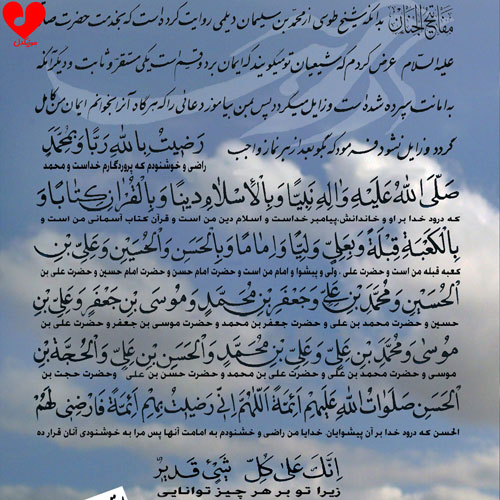 مفاتیح الجنان
بدانکه شیخ طوسی از محمد بن سلیمان دیلمی روایت کرده است که بخدمت حضرت صادق
علیه السلام عرض کردم که شیعیان تو میگویند که ایمان بر دو قسم است یکی مستقر و ثابت و دیگر آنکه
به امانت سپرده شده است و زایل میگردد پس بمن بیاموز دعائی را که هرگاه آنرا بخوانم ایمان من کامل
گردد و زایل نشود فرمود که بگو بعد از هر نماز واجب رَضیتُ بِاللهِ رَبًّا وَ بِمُحَمَّدٍ
راضی و خوشنودم که پروردگارم خداست و محمد
صَلَّی اللهُ عَلَیْهِ وَالِهِ نَبِیًّا وَ بِالْاِسْلامِ دینًا وَ بِالْقُرْانِ کِتابًا وَ
که درود خدا بر او و خاندانش، پیامبر خداست و اسلام دین من است و قرآن کتاب آسمانی من است و
بِالْکَعْبَةِ قِبْلَةً وَ بِعَلِیٍّ وَلِیًّا وَ اِمامًا وَ بِالْحَسَنِ وَ الْحُسَیْنِ وَ عَلِیِّ بْنِ
کعبه قبله من است و حضرت علی ، ولی و پیشوا و امام من است و حضرت امام حسن و حضرت امام حسین و حضرت علی بن
الْحُسَیْنِ وَ مُحَمَّدِ بْنِ عَلِیٍّ وَ جَعْفَرِ بْنِ مُحَمَّدٍ وَ مُوسَی بْنِ جَعْفَرٍ وَ عَلِیِّ بْنِ
حسین و حضرت محمد بن علی و حضرت جعفر بن محمد و حضرت موسی بن جعفر و حضرت علی بن
مُوسی وَ مُحَمَّدِ بْنِ عَلِیٍّ وَ عَلِیِّ بْنِ مُحَمَّدٍ وَ الْحَسَنِ بْنِ عَلِیٍّ وَ الْحُجَّةِ بْنِ
موسی و حضرت محمد بن علی و حضرت علی بن محمد و حضرت حسن بن علی وحضرت حجت بن
الْحَسَنِ صَلَواتُ اللهِ عَلَیْهِمْ اَئِمَّةً اَللّهُمَّ اِنّی رَضیتُ بِهِمْ اَئِمَّةً فَارْضَنی لَهُمْ
الحسن که درود خدا بر آن پیشوایان خدایا من راضی و خشنودم به امامت آنها پس مرا به خوشنودی آنان قرار ده
اِنَّکَ عَلی کُلِّ شَیْئٍ قَدیرٌ
زیرا تو بر هر چیز توانایی